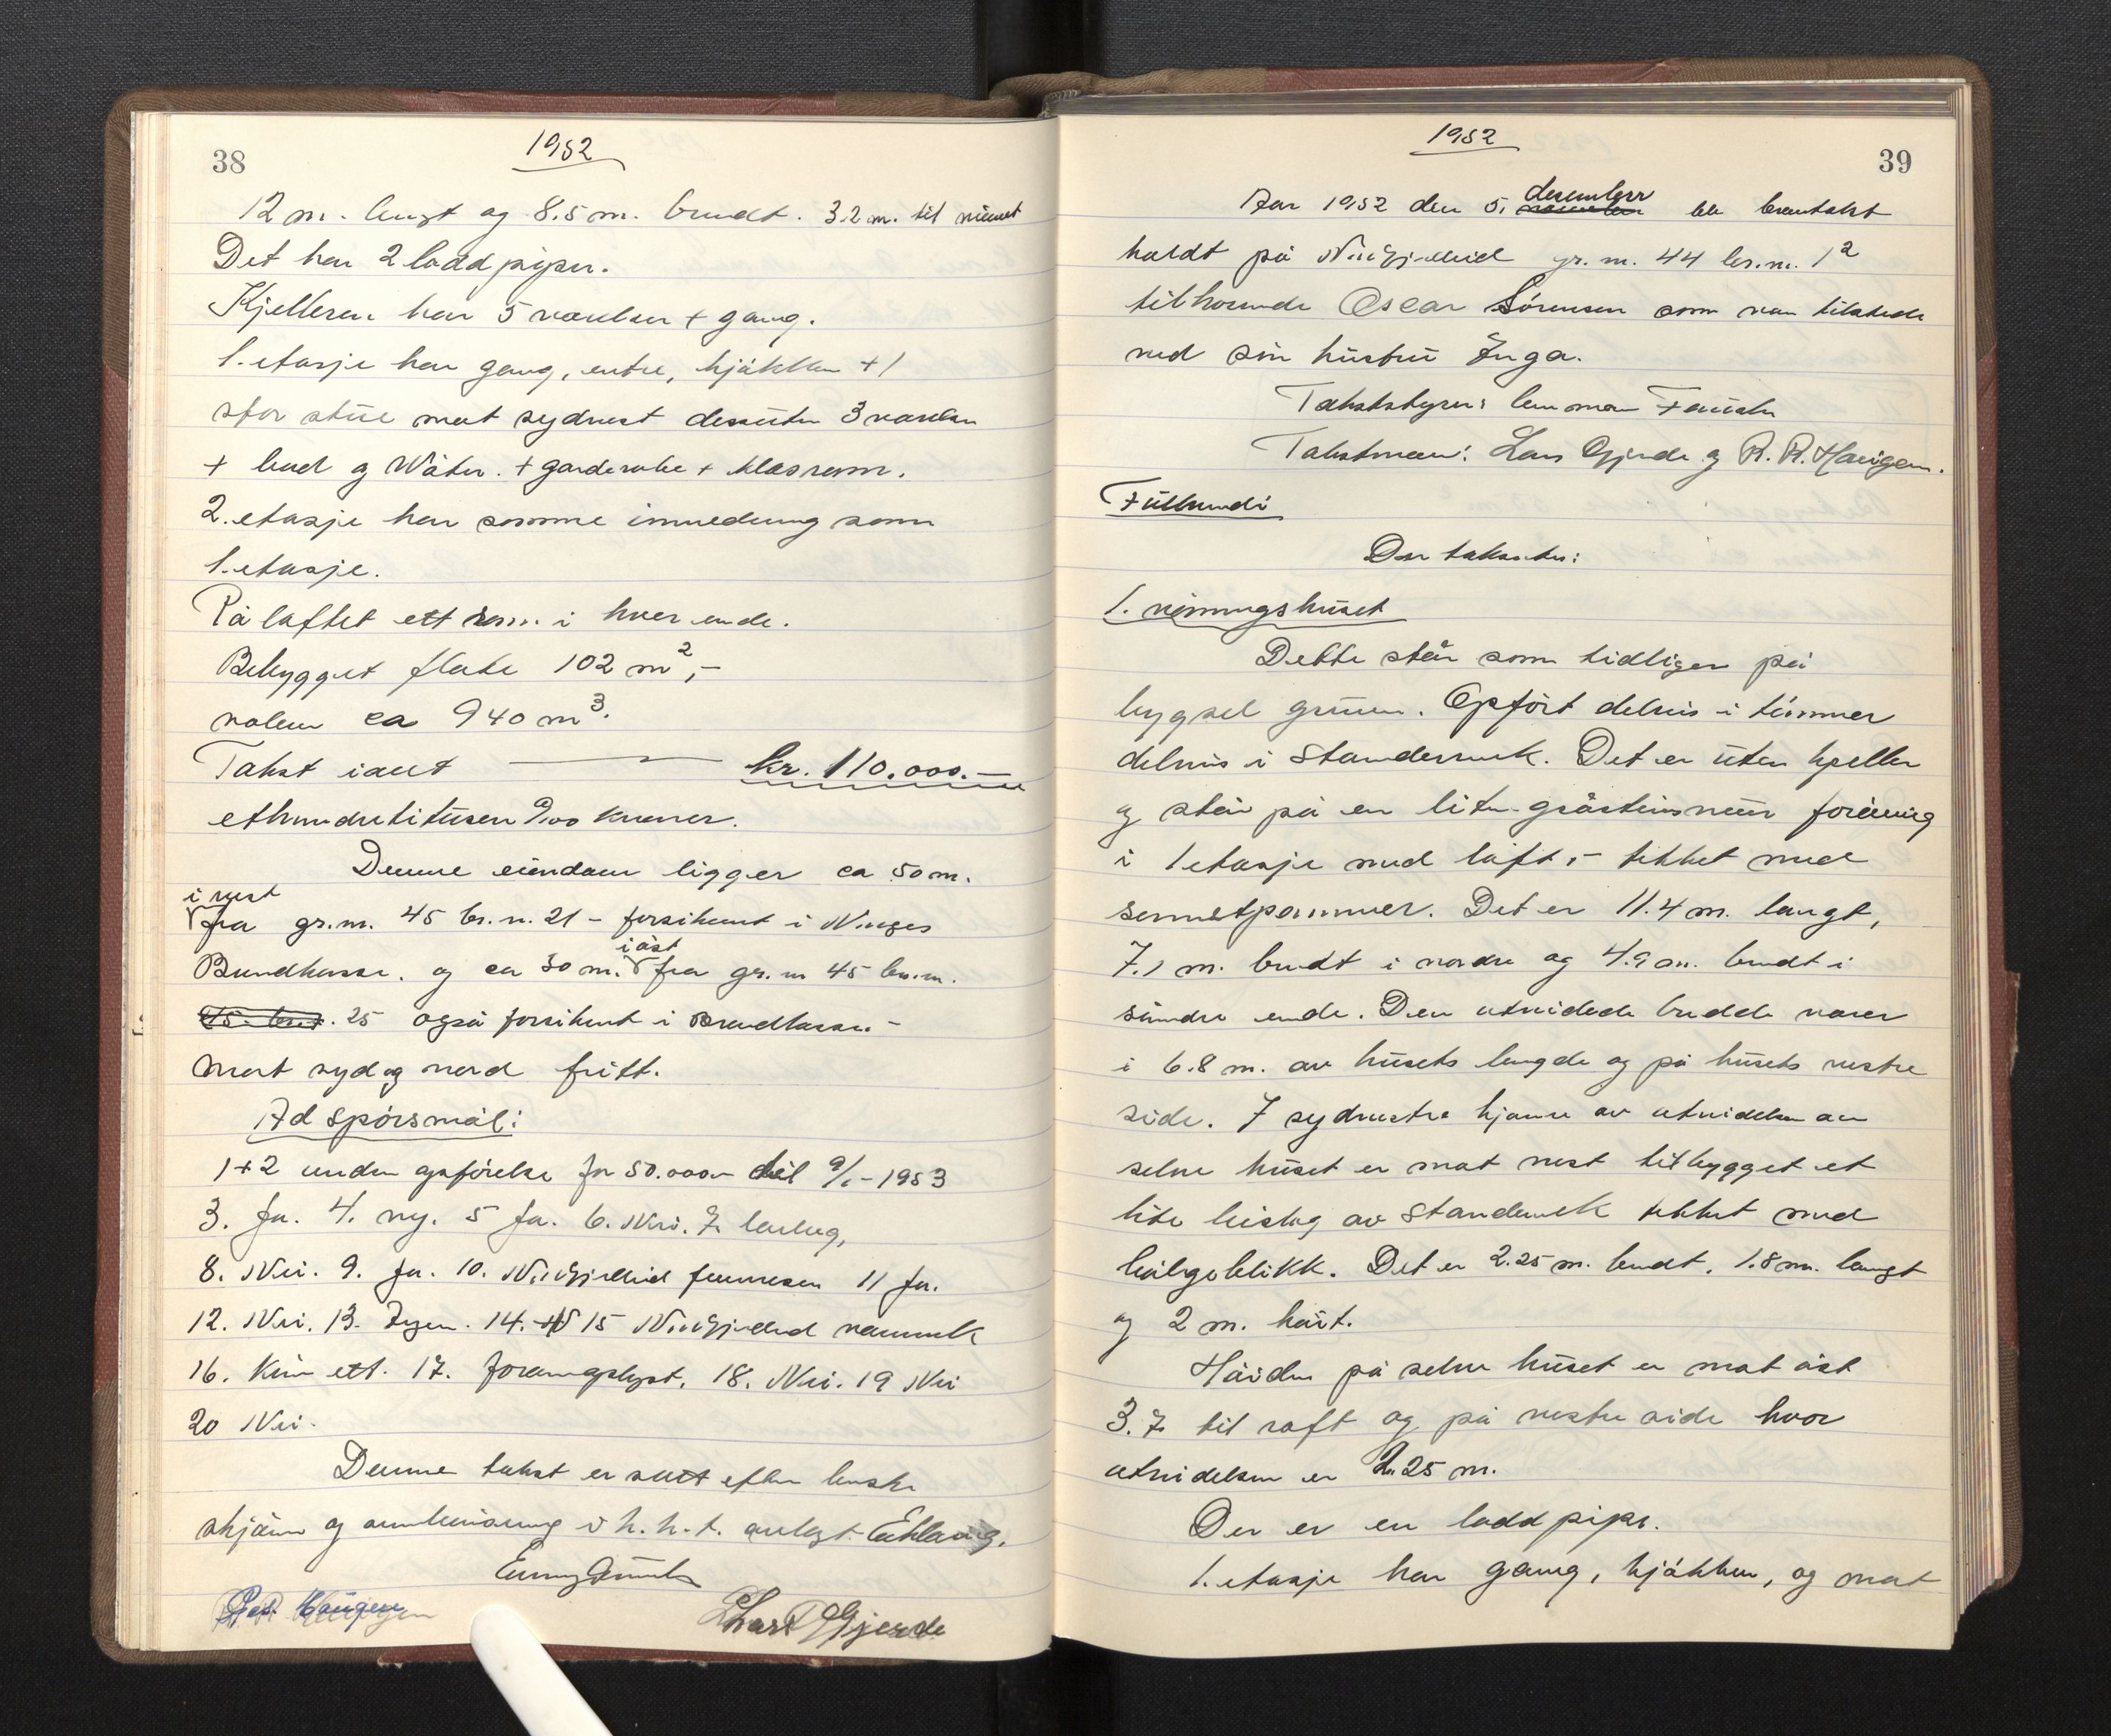 38
1952
12 m. langt og 8.5 m. bredt. 3.2 m. til
Det har 2 lodd piper.
Kjelleren har 5 værelser + gang.
1. etasje har gang, entre, kjökken + 1
stor stue mot sydvest dessuten 3 værelser
+ bad og Water. + garderobe + klosrom.
2. etasje har samme innredning som
1. etasje.
På loftet ett rom i hver ende.
Bebygget flate 102 m²,-
volum ca 940 m³.
Takst iallt kr. 110.000.-
ethundretitusen 0/00 kroner.
Denne eiendom ligger ca 50 m.
i vest
fra gr.n. 45 br.n. 21 - forsikret i Norges
i öst
Brandkasse. og ca 30 m. fra gr.n 45 br.n.
25 også forsikret i Brandkassen.-
Mot syd og nord fritt.
Ad spörsmål:
1+2 under opförelse for 50.000.- til 9/1-1953
3. Ja. 4. ny. 5 Ja. 6. Nei. 7.
8. Nei. 9. Ja. 10. 11 Ja.
12. Nei. 13. Ingen. 14. 15
16. Kun ett. 17. 18. Nei. 19 Nei
20 Nei.
Denne takst er satt efter beste
skjönn og overbevisning i h.h.t. avlagt Erklæring.
Lars Gjerde
1952
39
Aar 1952 den 5. desember ble branntakst
holdt på gr.n. 44 br.n. 1²
tilhörende Oscar Sörensen som var tilstede
med sin hustru Inga.
Takststyrer: lensman
Takstmenn: Lars Gjerde og R. R. Haugen.
Den taksten:
1. våningshuset
Dette står som tidligere på
bygsel grunn. Opfört delvis i tömmer
delvis i Standerverk. Det er uten kjeller
og står på en liten gråsteinsmur forövrig
i 1 etasje med loft,- tekket med
sementpanner. Det er 11.4 m. langt,
7.1 m. bredt i nordre og 4.9 m. bredt i
söndre ende. Den utvidede bredde varer
i 6.8 m. av husets lengde og på husets vestre
side. I sydvestre hjörne av utvidelsen av
selve huset er mot vest tilbygget et
lite bislag av Standerverk tekket med
bölgeblikk. Det er 2.25 m. bredt. 1.8 m. langt
og 2 m. höit.
Höiden på selve huset er mot öst
3.7 til raft og på vestre side hvor
utvidelsen er 2.25 m.
Der er en lodd pipe.
1. etasje har gang, kjökken, og mot